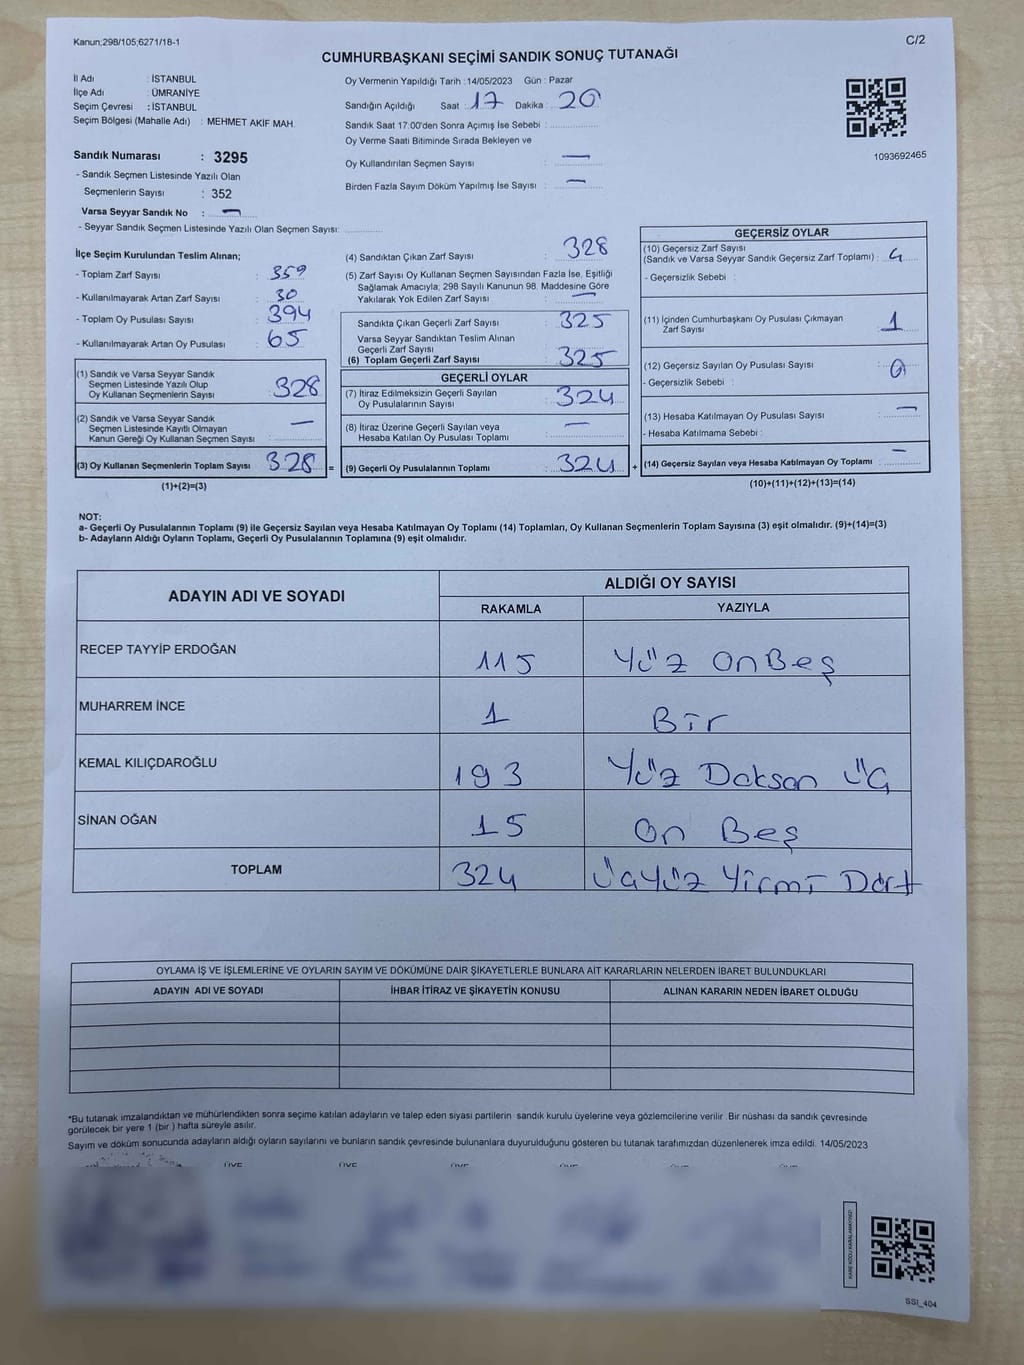 Kanun;298/105;6271/18-1
C/2
CUMHURBAŞKANI SEÇİMİ SANDIK SONUÇ TUTANAĞI
İl Adı : İSTANBUL
İlçe Adı : ÜMRANİYE
Seçim Çevresi : İSTANBUL
Seçim Bölgesi (Mahalle Adı) : MEHMET AKİF MAH.
Sandık Numarası : 3295
- Sandık Seçmen Listesinde Yazılı Olan
Seçmenlerin Sayısı : 352
Varsa Seyyar Sandık No : —
- Seyyar Sandık Seçmen Listesinde Yazılı Olan Seçmen Sayısı:
Oy Vermenin Yapıldığı Tarih : 14/05/2023 Gün : Pazar
Sandığın Açıldığı Saat : 17 Dakika : 20
Sandık Saat 17:00'den Sonra Açımış İse Sebebi :
Oy Verme Saati Bitiminde Sırada Bekleyen ve
Oy Kullandırılan Seçmen Sayısı : —
Birden Fazla Sayım Döküm Yapılmış İse Sayısı : —
1093692465
İlçe Seçim Kurulundan Teslim Alınan;
- Toplam Zarf Sayısı : 359
- Kullanılmayarak Artan Zarf Sayısı : 30
- Toplam Oy Pusulası Sayısı : 394
- Kullanılmayarak Artan Oy Pusulası : 65
(1) Sandık ve Varsa Seyyar Sandık
Seçmen Listesinde Yazılı Olup
Oy Kullanan Seçmenlerin Sayısı : 328
(2) Sandık ve Varsa Seyyar Sandık
Seçmen Listesinde Kayıtlı Olmayan
Kanun Gereği Oy Kullanan Seçmen Sayısı : —
(3) Oy Kullanan Seçmenlerin Toplam Sayısı : 328 =
(1)+(2)=(3)
(4) Sandıktan Çıkan Zarf Sayısı : 328
(5) Zarf Sayısı Oy Kullanan Seçmen Sayısından Fazla İse, Eşitliği
Sağlamak Amacıyla; 298 Sayılı Kanunun 98. Maddesine Göre
Yakılarak Yok Edilen Zarf Sayısı : —
Sandıkta Çıkan Geçerli Zarf Sayısı : 325
Varsa Seyyar Sandıktan Teslim Alınan
Geçerli Zarf Sayısı :
(6) Toplam Geçerli Zarf Sayısı : 325
GEÇERLİ OYLAR
(7) İtiraz Edilmeksizin Geçerli Sayılan
Oy Pusulalarının Sayısı : 324
(8) İtiraz Üzerine Geçerli Sayılan veya
Hesaba Katılan Oy Pusulası Toplamı : —
(9) Geçerli Oy Pusulalarının Toplamı : 324 +
GEÇERSİZ OYLAR
(10) Geçersiz Zarf Sayısı
(Sandık ve Varsa Seyyar Sandık Geçersiz Zarf Toplamı) :
- Geçersizlik Sebebi :
(11) İçinden Cumhurbaşkanı Oy Pusulası Çıkmayan
Zarf Sayısı : 1
(12) Geçersiz Sayılan Oy Pusulası Sayısı : 0
- Geçersizlik Sebebi :
(13) Hesaba Katılmayan Oy Pusulası Sayısı : —
- Hesaba Katılmama Sebebi :
(14) Geçersiz Sayılan veya Hesaba Katılmayan Oy Toplamı : —
(10)+(11)+(12)+(13)=(14)
NOT:
a- Geçerli Oy Pusulalarının Toplamı (9) ile Geçersiz Sayılan veya Hesaba Katılmayan Oy Toplamı (14) Toplamları, Oy Kullanan Seçmenlerin Toplam Sayısına (3) eşit olmalıdır. (9)+(14)=(3)
b- Adayların Aldığı Oyların Toplamı, Geçerli Oy Pusulalarının Toplamına (9) eşit olmalıdır.
ADAYIN ADI VE SOYADI
ALDIĞI OY SAYISI
RAKAMLA YAZIYLA
RECEP TAYYİP ERDOĞAN 115 Yüz On Beş
MUHARREM İNCE 1 Bir
KEMAL KILIÇDAROĞLU 193 Yüz Doksan Üç
SİNAN OĞAN 15 On Beş
TOPLAM 324 Üçyüz Yirmi Dört
OYLAMA İŞ VE İŞLEMLERİNE VE OYLARIN SAYIM VE DÖKÜMÜNE DAİR ŞİKAYETLERLE BUNLARA AİT KARARLARIN NELERDEN İBARET BULUNDUKLARI
ADAYIN ADI VE SOYADI İHBAR İTİRAZ VE ŞİKAYETİN KONUSU ALINAN KARARIN NEDEN İBARET OLDUĞU
*Bu tutanak imzalandıktan ve mühürlendikten sonra seçime katılan adayların ve talep eden siyasi partilerin sandık kurulu üyelerine veya gözlemcilerine verilir. Bir nüshası da sandık çevresinde
görülecek bir yere 1 (bir ) hafta süreyle asılır.
Sayım ve döküm sonucunda adayların aldığı oyların sayılarını ve bunların sandık çevresinde bulunanlara duyurulduğunu gösteren bu tutanak tarafımızdan düzenlenerek imza edildi. 14/05/2023
ÜYE ÜYE ÜYE ÜYE ÜYE ÜYE
KARE KODU KARALAMAYINIZ!
SSİ_404